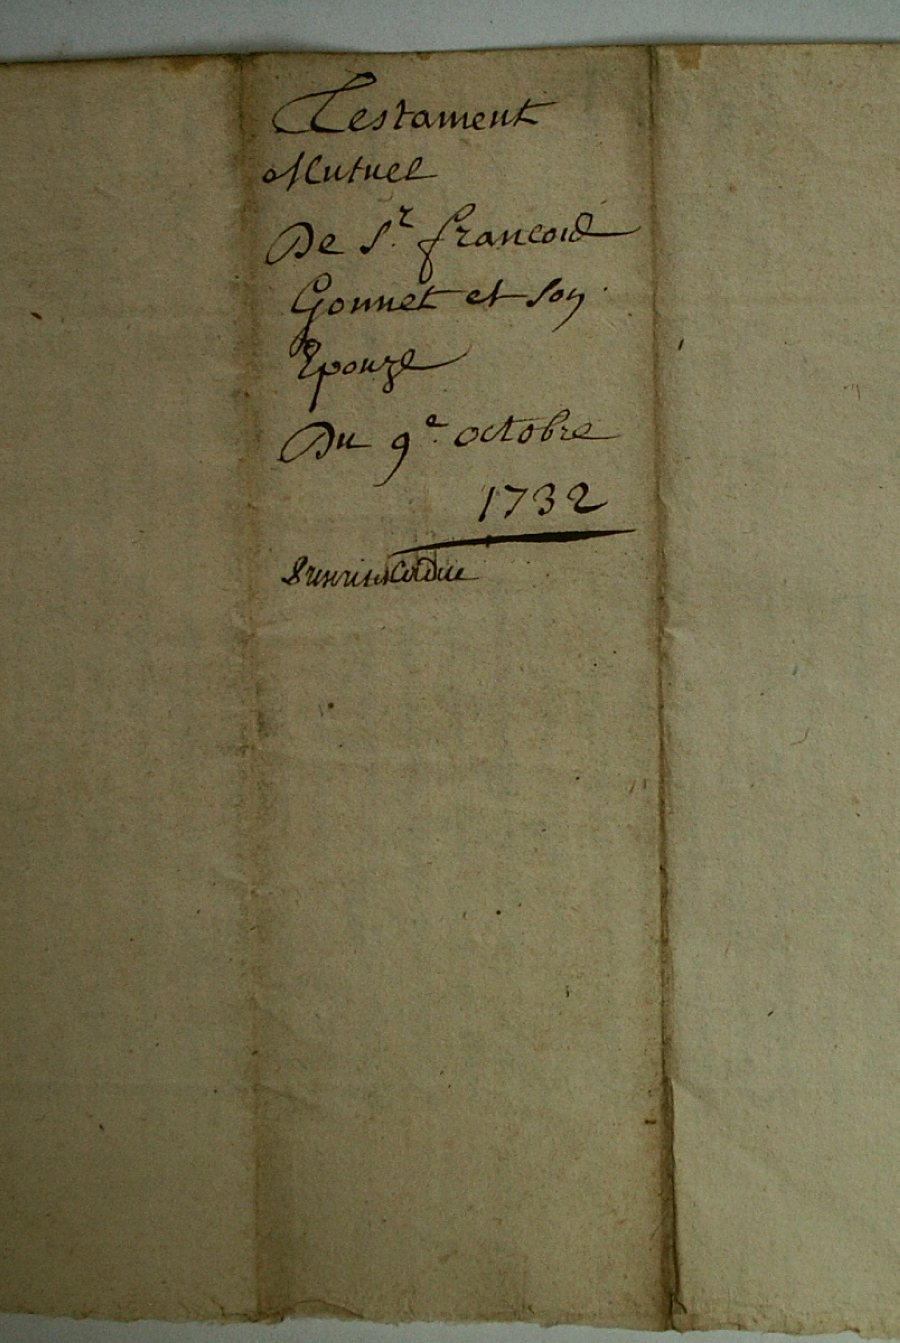 Testament
Mutuel
De Sr. francois
Gonnet et son
Epouze
Du 9e. octobre
1732